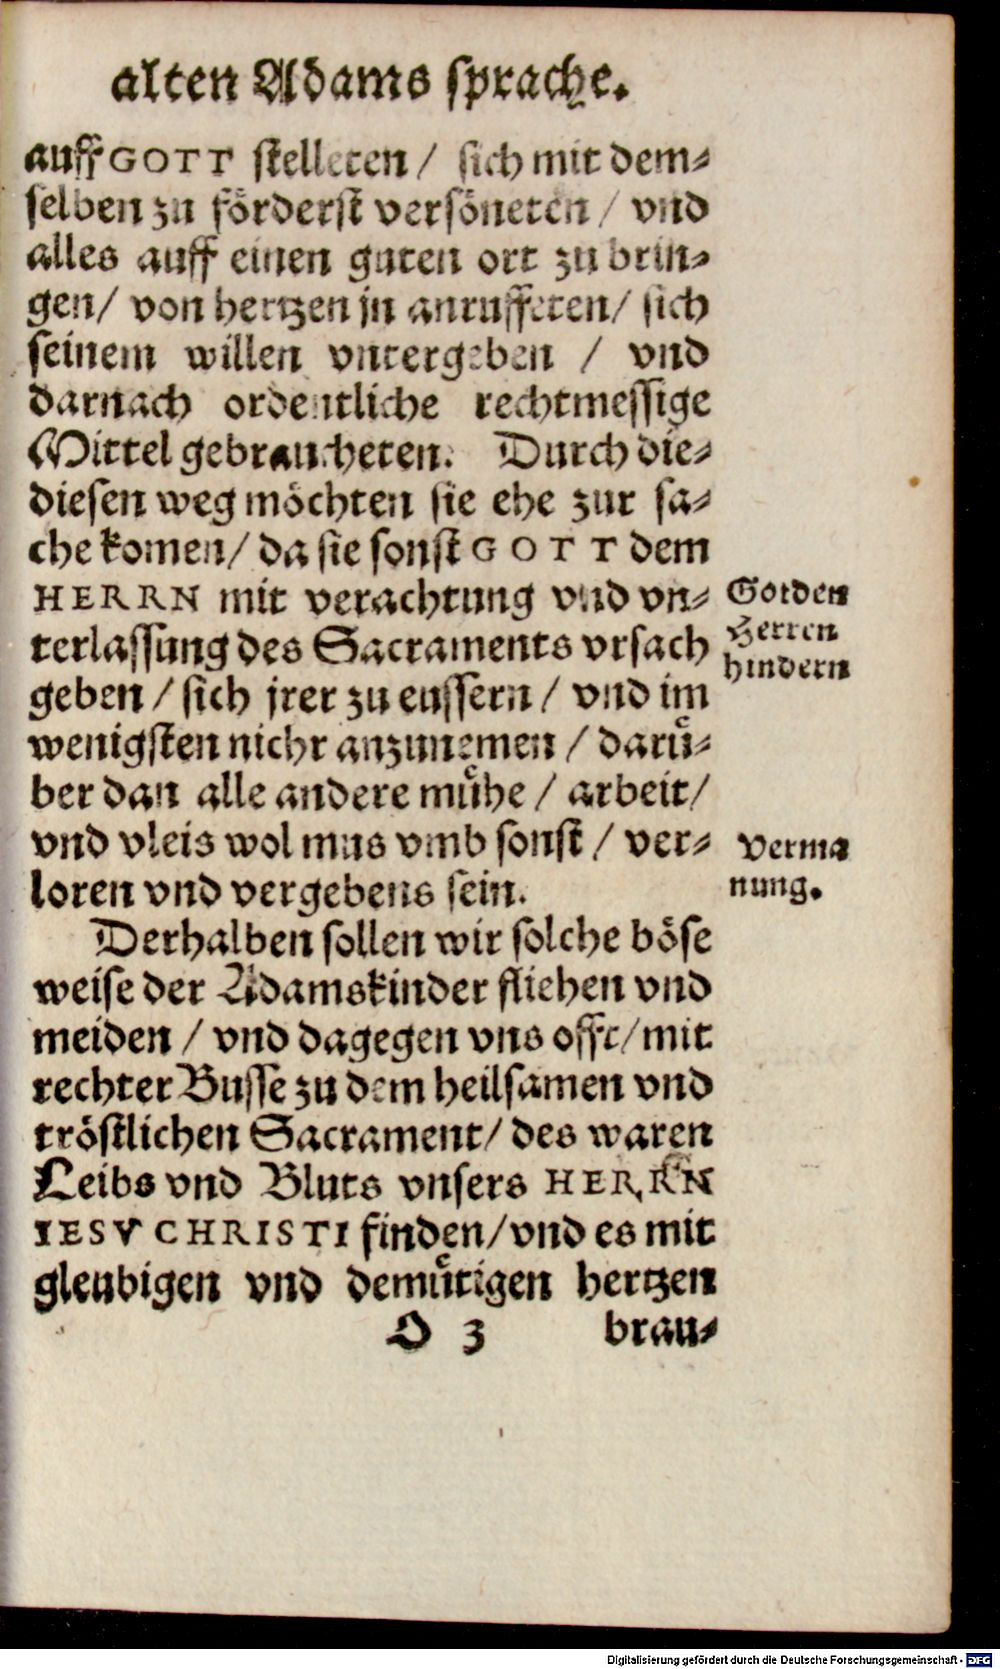 alten Adams sprache.
auff GOTT stelleten / sich mit dem⸗
selben zu förderst versöneten / vnd
alles auff einen guten ort zu brin⸗
gen / von hertzen jn anruffeten / sich
seinem willen vntergeben / vnd
darnach ordentliche rechtmessige
Mittel gebraucheten. Durch die⸗
diesen weg möchten sie ehe zur sa⸗
che komen / da sie sonst GOTT dem
HERRN mit verachtung vnd vn⸗
terlassung des Sacraments vrsach
geben / sich jrer zu eussern / vnd im
wenigsten nicht anzunemen / darü⸗
ber dan alle andere mühe / arbeit /
vnd vleis wol mus vmb sonst / ver⸗
loren vnd vergebens sein.
Gotden
Herren
hindern
Verma
nung.
Derhalben sollen wir solche böse
weise der Adamskinder fliehen vnd
meiden / vnd dagegen vns offt / mit
rechter Busse zu dem heilsamen vnd
tröstlichen Sacrament / des waren
Leibs vnd Bluts vnsers HERRN
IESV CHRISTI finden / vnd es mit
gleubigen vnd demütigen hertzen
O 3 brau⸗
Digitalisierung gefördert durch die Deutsche Forschungsgemeinschaft - DFG